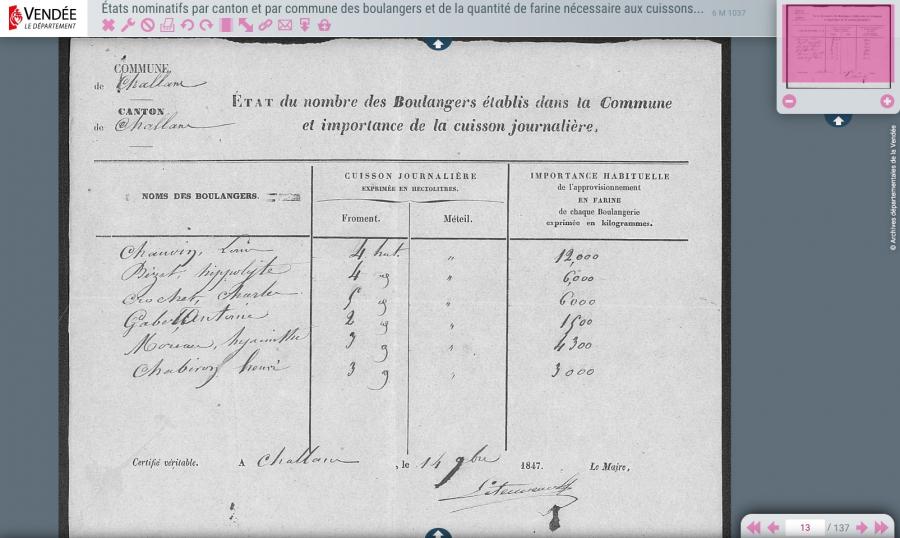 VENDÉE
LE DÉPARTEMENT
États nominatifs par canton et par commune des boulangers et de la quantité de farine nécessaire aux cuissons...
6 M 1037
COMMUNE
de Challans
CANTON
de Challans
ÉTAT du nombre des Boulangers établis dans la Commune
et importance de la cuisson journalière.
NOMS DES BOULANGERS.
CUISSON JOURNALIÈRE
EXPRIMÉE EN HECTOLITRES.
Froment.
Méteil.
IMPORTANCE HABITUELLE
de l'approvisionnement
EN FARINE
de chaque Boulangerie
exprimée en kilogrammes.
Chauvin, Louis 4 hect. " 12,000
Bizet, hippolyte 4 " 6,000
Crochet, Charles 5 " 6000
Antoine 2 " 1500
Moreau, hyacinthe 3 " 4300
Chabiron henri 3 " 3000
Certifié véritable. A Challans, le 14 9bre 1847. Le Maire,
© Archives départementales de la Vendée
13 / 137